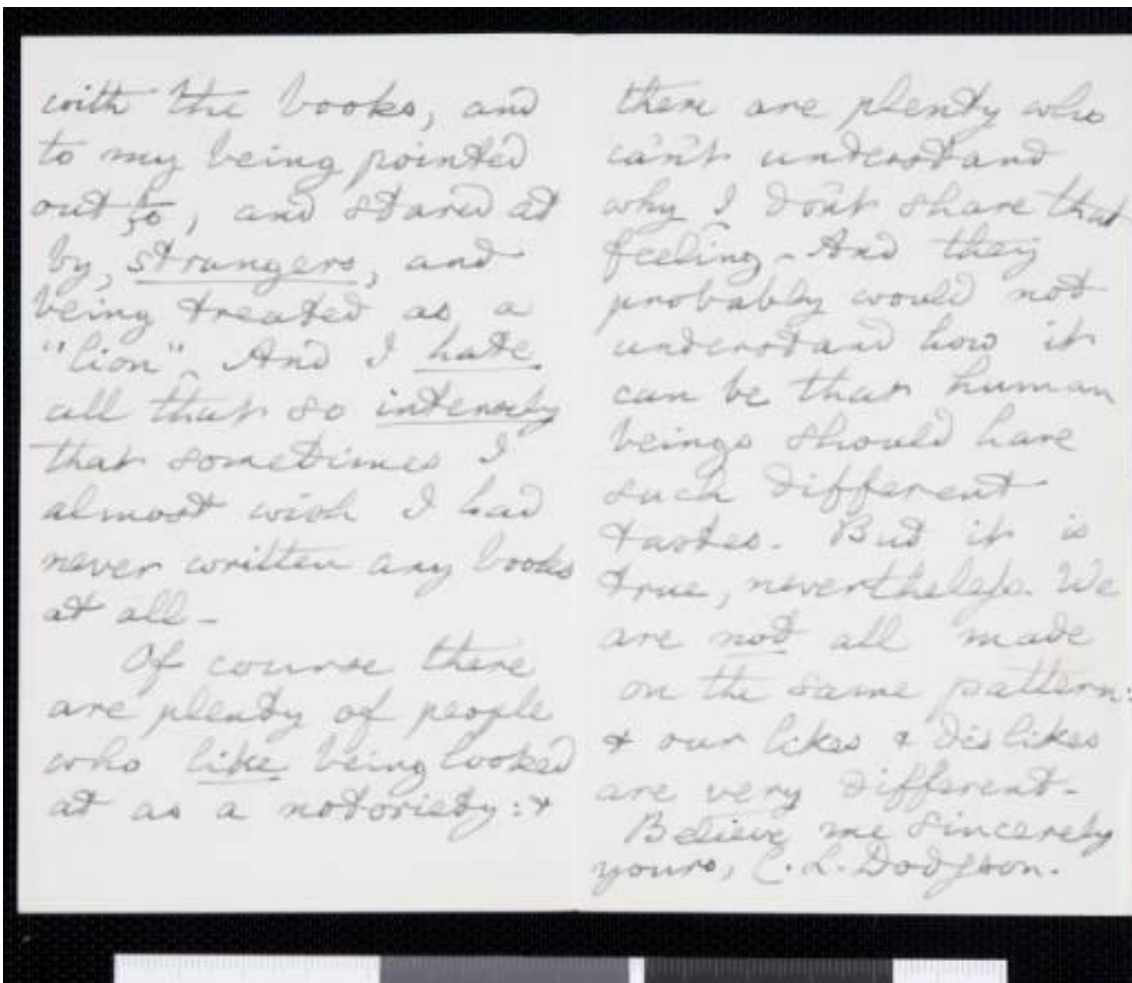 with the books, and
to my being pointed
out to, and stared at
by, strangers, and
being treated as a
"lion". And I hate
all that so intensely
that sometimes I
almost wish I had
never written any books
at all -
Of course there
are plenty of people
who like being looked
at as a notoriety: &
there are plenty who
ca'n't understand
why I don't share that
feeling - And they
probably would not
understand how it
can be that human
beings should have
such different
tastes. But it is
true, nevertheless. We
are not all made
on the same pattern:
& our likes & dislikes
are very different -
Believe me sincerely
yours, C. L. Dodgson.